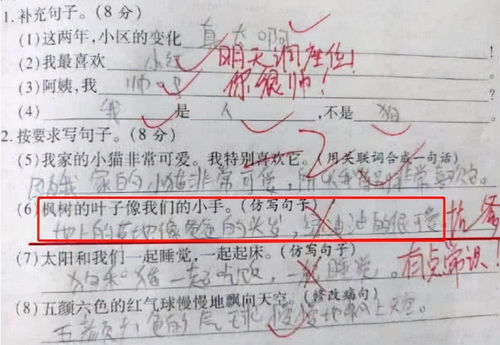 1.补充句子。(8分)
(1)这两年,小区的变化 真大啊
(2)我最喜欢 小红 明天调座位!
(3)阿姨,我 帅吗 你很帅!
(4) 我 是 人 ,不是 狗
2.按要求写句子。(8分)
(5)我家的小猫非常可爱。我特别喜欢它。(用关联词合成一句话)
因为我家的小猫非常可爱,所以我非常喜欢
(6)枫树的叶子像我们的小手。(仿写句子)
地上的草地像爸爸的头发,
(7)太阳和我们一起睡觉,一起起床。(仿写句子) 有点常识!
(8)五颜六色的红气球慢慢地飘向天空。(修改病句)
五颜六色的气球慢慢地飘上天空。